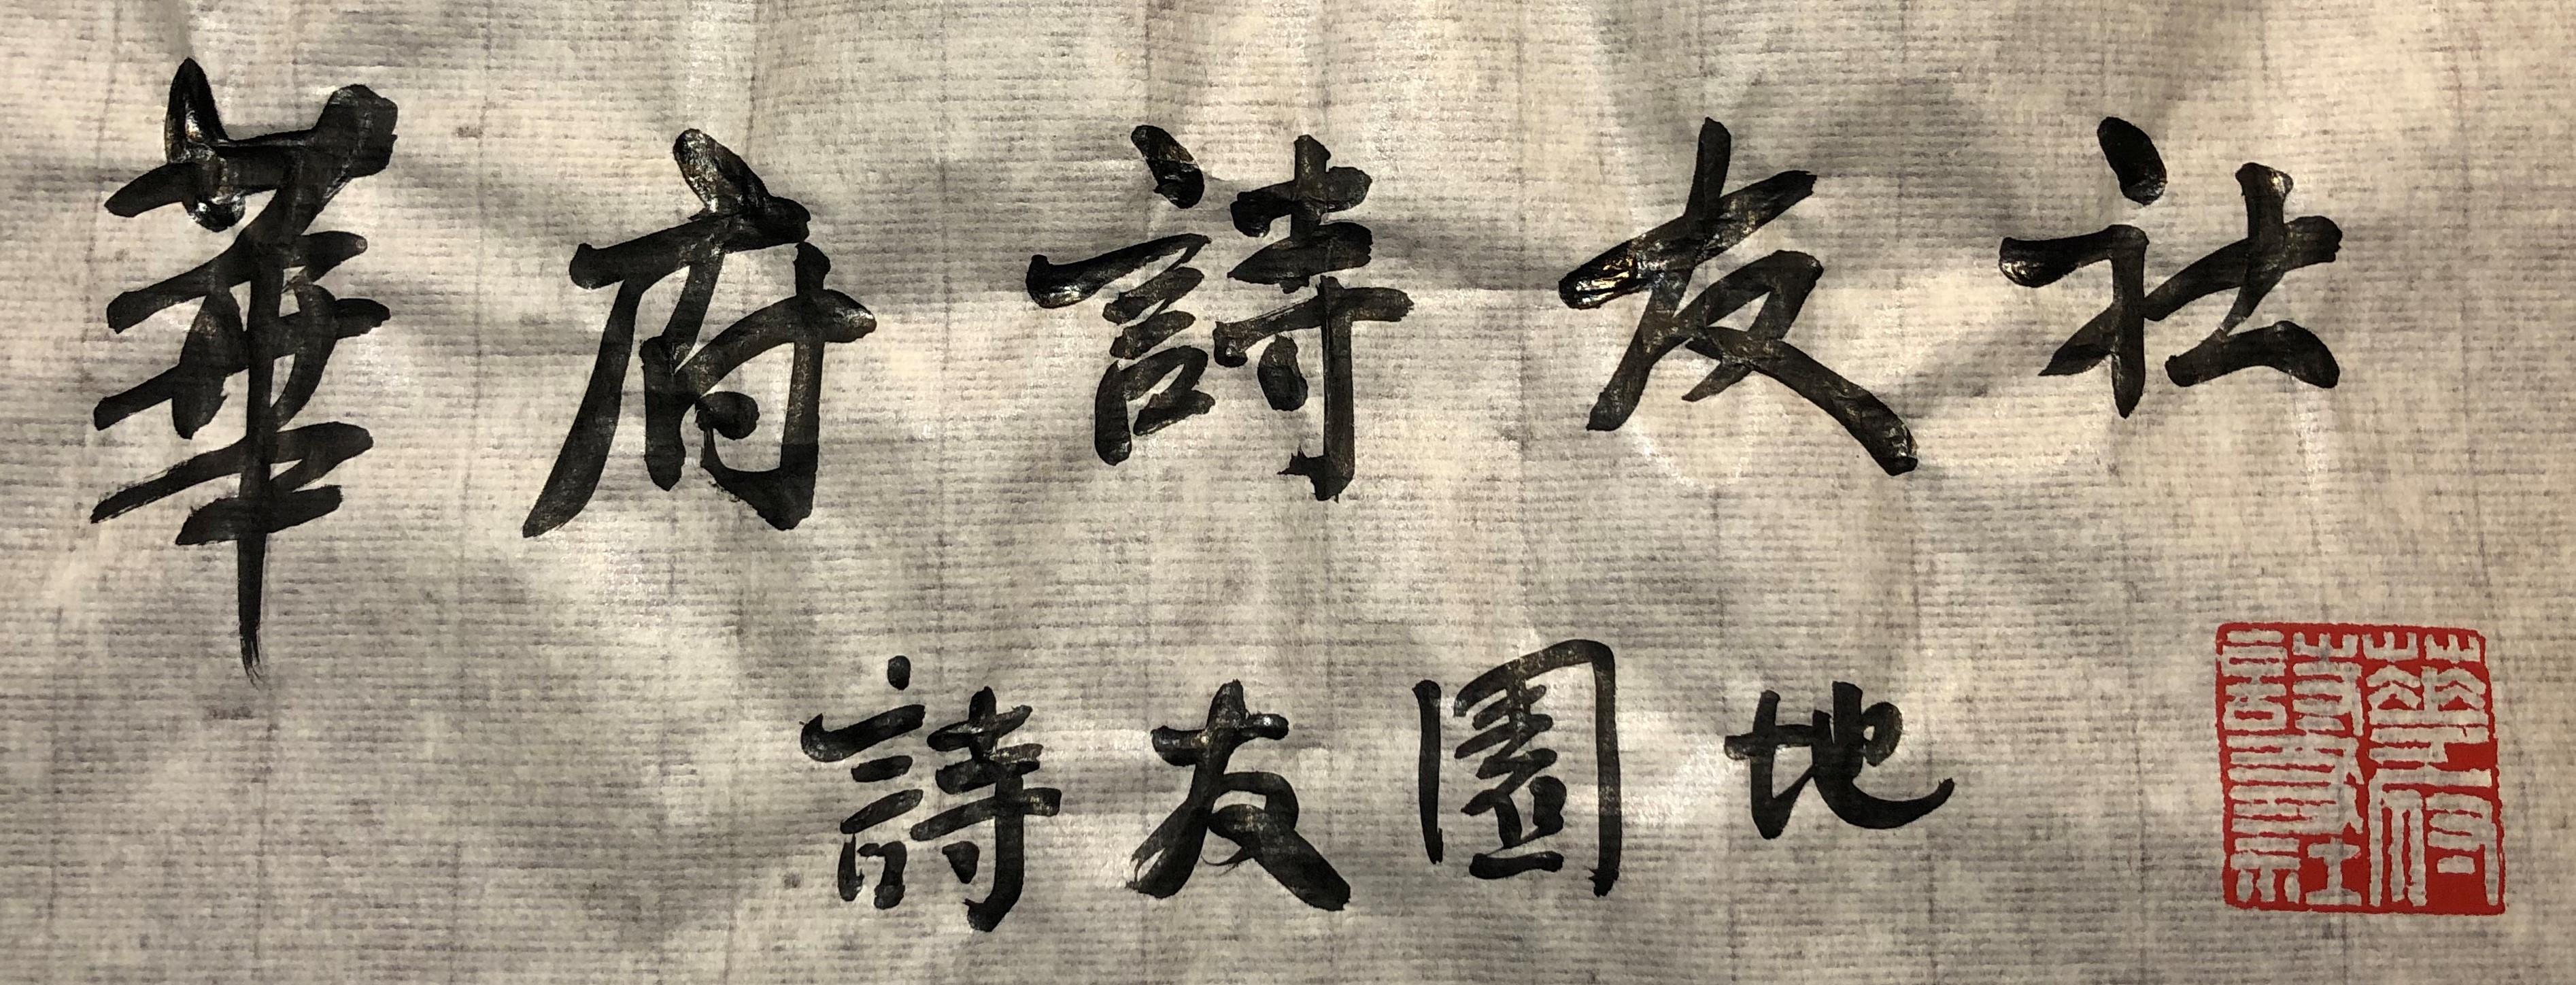 華府詩友社
詩友園地
華府詩友社